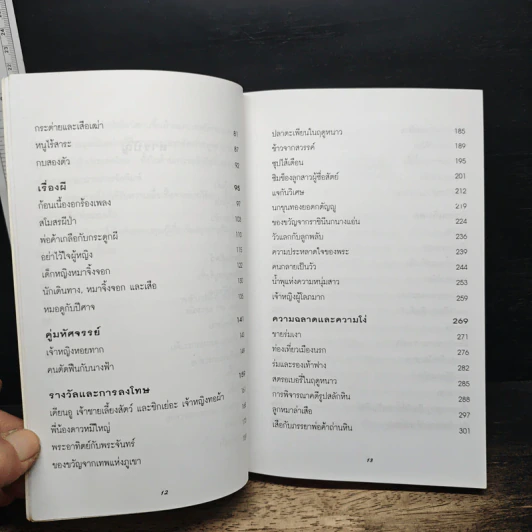 กระต่ายและเสือเฒ่า 81
หนูไร้สาระ 87
กบสองตัว 92
เรื่องผี 95
ก้อนเนื้องอกร้องเพลง 97
สโมสรผีป่า
พ่อค้าเกลือกับกระดูกผี
อย่าไว้ใจผู้หญิง
เด็กหญิงหมาจิ้งจอก
นักเดินทาง, หมาจิ้งจอก และเสือ
หมอดูกับปีศาจ
คู่มหัศจรรย์
เจ้าหญิงหอยทาก
คนตัดฟืนกับนางฟ้า
รางวัลและการลงโทษ
เคียนอู เจ้าชายเลี้ยงสัตว์ และชิกเย่อะ เจ้าหญิงทอผ้า
พี่น้องดาวหมีใหญ่
พระอาทิตย์กับพระจันทร์
ของขวัญจากเทพแห่งภูเขา
12
ปลาตะเพียนในฤดูหนาว 185
ข้าวจากสวรรค์ 189
ซุปไส้เดือน 195
ชิมช้องลูกสาวผู้ซื่อสัตย์ 201
แจกันวิเศษ 212
นกขุนทองยอดกตัญญู 219
ของขวัญจากราชินีนกนางแอ่น 224
วัวแลกกับลูกพลับ 236
ความประหลาดใจของพระ 239
คนกลายเป็นวัว 244
น้ำพุแห่งความหนุ่มสาว 253
เจ้าหญิงผู้โลภมาก 259
ความฉลาดและความโง่ 269
ชายร่มเงา 271
ท่องเที่ยวเมืองนรก 276
ร่มและรองเท้าฟาง 282
สตรอเบอรี่ในฤดูหนาว 285
การพิจารณาคดีรูปสลักหิน 288
ลูกหมาล่าเสือ 297
เสือกับภรรยาพ่อค้าถ่านหิน 301
13